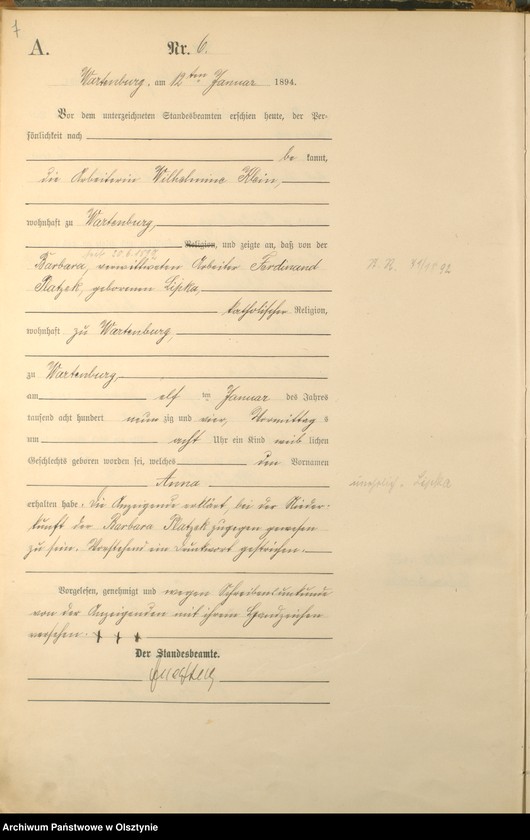 7
A.
Nr. 6.
Wartenburg, am 12ten Januar 1894.
Vor dem unterzeichneten Standesbeamten erschien heute, der Per-
sönlichkeit nach
be kannt,
die Arbeiterin Wilhelmine Klein,
wohnhaft zu Wartenburg,
Religion, und zeigte an, daß von der
Barbara, verwittweten Arbeiter Ferdinand
Platzek, geborenen Lipka,
katholischer Religion,
wohnhaft zu Wartenburg,
zu Wartenburg,
am elf ten Januar des Jahres
tausend acht hundert neun zig und vier, Vormittag s
um acht Uhr ein Kind weib lichen
Geschlechts geboren worden sei, welches den Vornamen
Anna
erhalten habe. Die Anzeigende erklärt, bei der Nieder-
kunft der Barbara Platzek zugegen gewesen
zu sein. Vorstehend ein Druckwort gestrichen.
Vorgelesen, genehmigt und wegen Schreibensunkunde
von der Anzeigenden mit ihrem Handzeichen
versehen. + + +
Der Standesbeamte.
Lipka
Archiwum Państwowe w Olsztynie